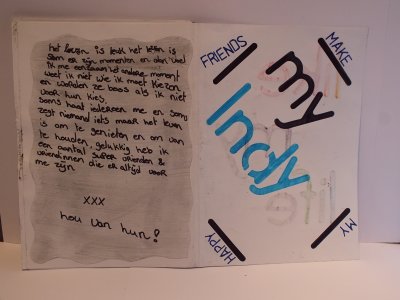 het leven is leuk het leven is
som er zijn momenten en dan voel
ik me eenzaam het andere moment
weet ik niet wie ik moet kiezen
en worden ze boos als ik niet
voor hun kies,
soms haat iedereen me en soms
zegt niemand iets maar het leven
is om te genieten en om van
te houden, gelukkig heb ik
een aantal super vrienden &
vriendinnen die er altijd voor
me zijn
xxx
hou van hun!
FRIENDS
MAKE
my
Indy
HAPPY
MY
life